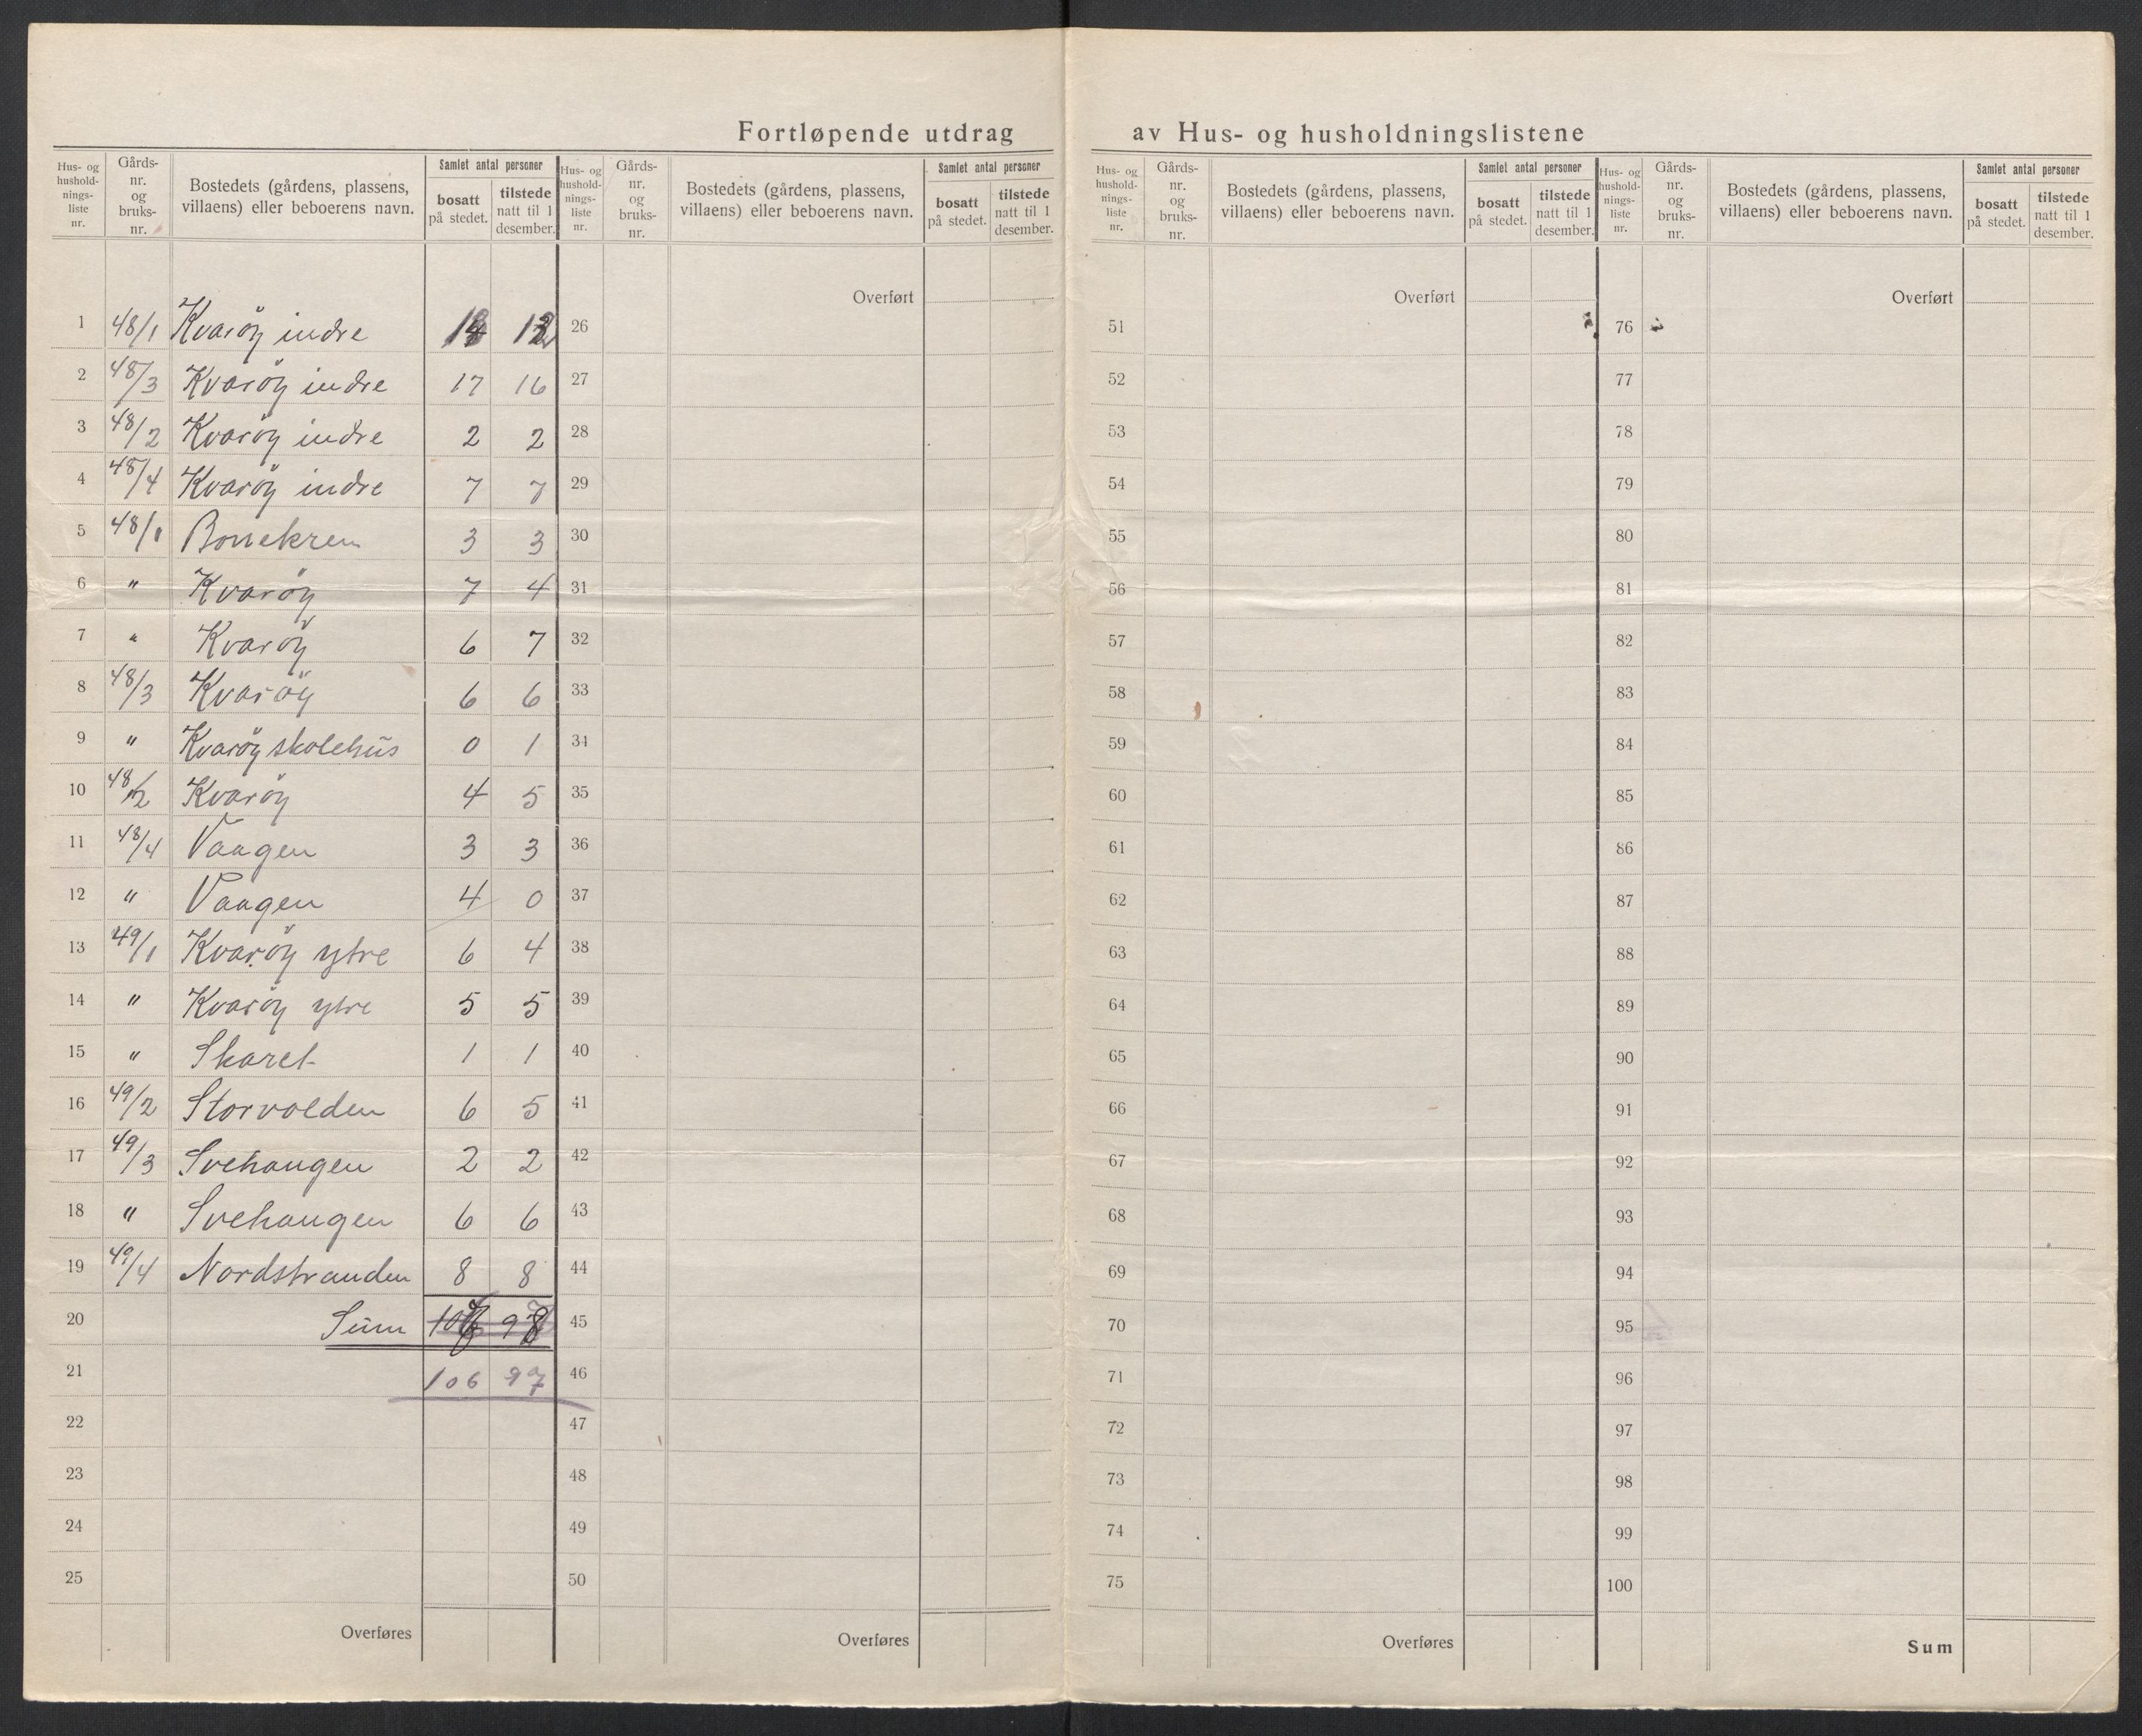 Fortløpende utdrag av Hus- og husholdningslistene
Hus- og hushold-nings-liste nr. | Gårds-nr. og bruks-nr. | Bostedets (gårdens, plassens, villaens) eller beboerens navn. | Samlet antal personer | bosatt på stedet. | tilstede natt til 1 desember.
1 48/1 Kvaröy indre
2 48/3 Kvaröy indre 17 16
3 48/2 Kvaröy indre 2 2
4 48/4 Kvaröy indre 7 7
5 48/1 3 3
6 " Kvaröy 7 4
7 " Kvaröy 6 7
8 48/3 Kvaröy 6 6
9 " Kvaröy skolehus 0 1
10 48/2 Kvaröy 4 5
11 48/4 Vaagen 3 3
12 " Vaagen 4 0
13 49/1 Kvaröy ytre 6 4
14 " Kvaröy ytre 5 5
15 " Skaret 1 1
16 49/2 Storvolden 6 5
17 49/3 Svehaugen 2 2
18 " Svehaugen 6 6
19 49/4 Nordstranden 8 8
20 Sum
21 106 97
22
23
24
25
Overføres
Hus- og hushold-nings-liste nr. | Gårds-nr. og bruks-nr. | Bostedets (gårdens, plassens, villaens) eller beboerens navn. | Samlet antal personer | bosatt på stedet. | tilstede natt til 1 desember.
Overført
26
27
28
29
30
31
32
33
34
35
36
37
38
39
40
41
42
43
44
45
46
47
48
49
50
Overføres
Hus- og hushold-nings-liste nr. | Gårds-nr. og bruks-nr. | Bostedets (gårdens, plassens, villaens) eller beboerens navn. | Samlet antal personer | bosatt på stedet. | tilstede natt til 1 desember.
Overført
51
52
53
54
55
56
57
58
59
60
61
62
63
64
65
66
67
68
69
70
71
72
73
74
75
Overføres
Hus- og hushold-nings-liste nr. | Gårds-nr. og bruks-nr. | Bostedets (gårdens, plassens, villaens) eller beboerens navn. | Samlet antal personer | bosatt på stedet. | tilstede natt til 1 desember.
Overført
76
77
78
79
80
81
82
83
84
85
86
87
88
89
90
91
92
93
94
95
96
97
98
99
100
Sum